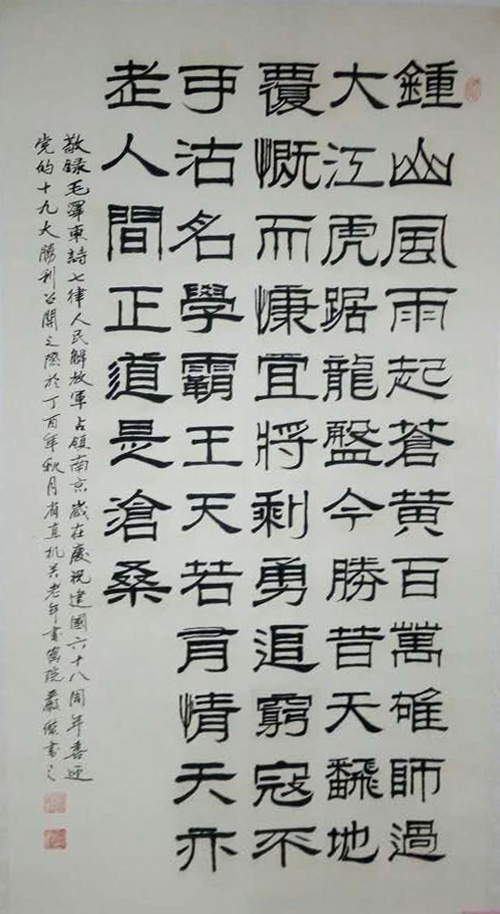 鍾山風雨起蒼黃百萬雄師過
大江虎踞龍盤今勝昔天飜地
覆慨而慷宜將剩勇追窮寇不
可沽名學霸王天若有情天亦
老人間正道是滄桑
敬録毛澤東詩七律人民解放軍占領南京歲在慶祝建國六十八周年喜迎
党的十九大勝利召開之際於丁酉年秋月省直机关老年書畫院嚴書之